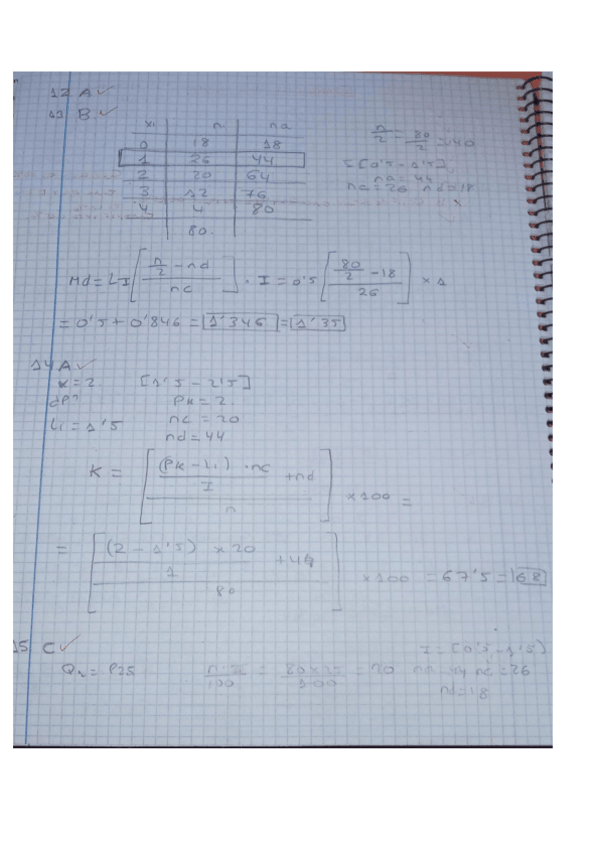 12 A ✓
13 B ✓
xi n na
0 18 18
1 26 44
2 20 64
3 12 76
4 4 80
80
n/2 = 80/2 = 40
I [0'5 - 1'5]
na = 44
nc = 26 nd = 18
Md = LI [ (n/2 - nd) / nc ] · I = 0'5 [ (80/2 - 18) / 26 ] × 1
= 0'5 + 0'846 = 1'346 = 1'35
14 A ✓
K = 2 [1'5 - 2'5]
dP? Pk = 2
Li = 1'5 nc = 20
nd = 44
K = [ ( (Pk - Li) · nc / I + nd ) / n ] × 100 =
= [ ( (2 - 1'5) × 20 / 1 + 44 ) / 80 ] × 100 = 67'5 = 68
15 C ✓
I = [0'5 - 1'5)
= P25 = 80 × 25 / 100 = 20 44 nc = 26
nd = 18